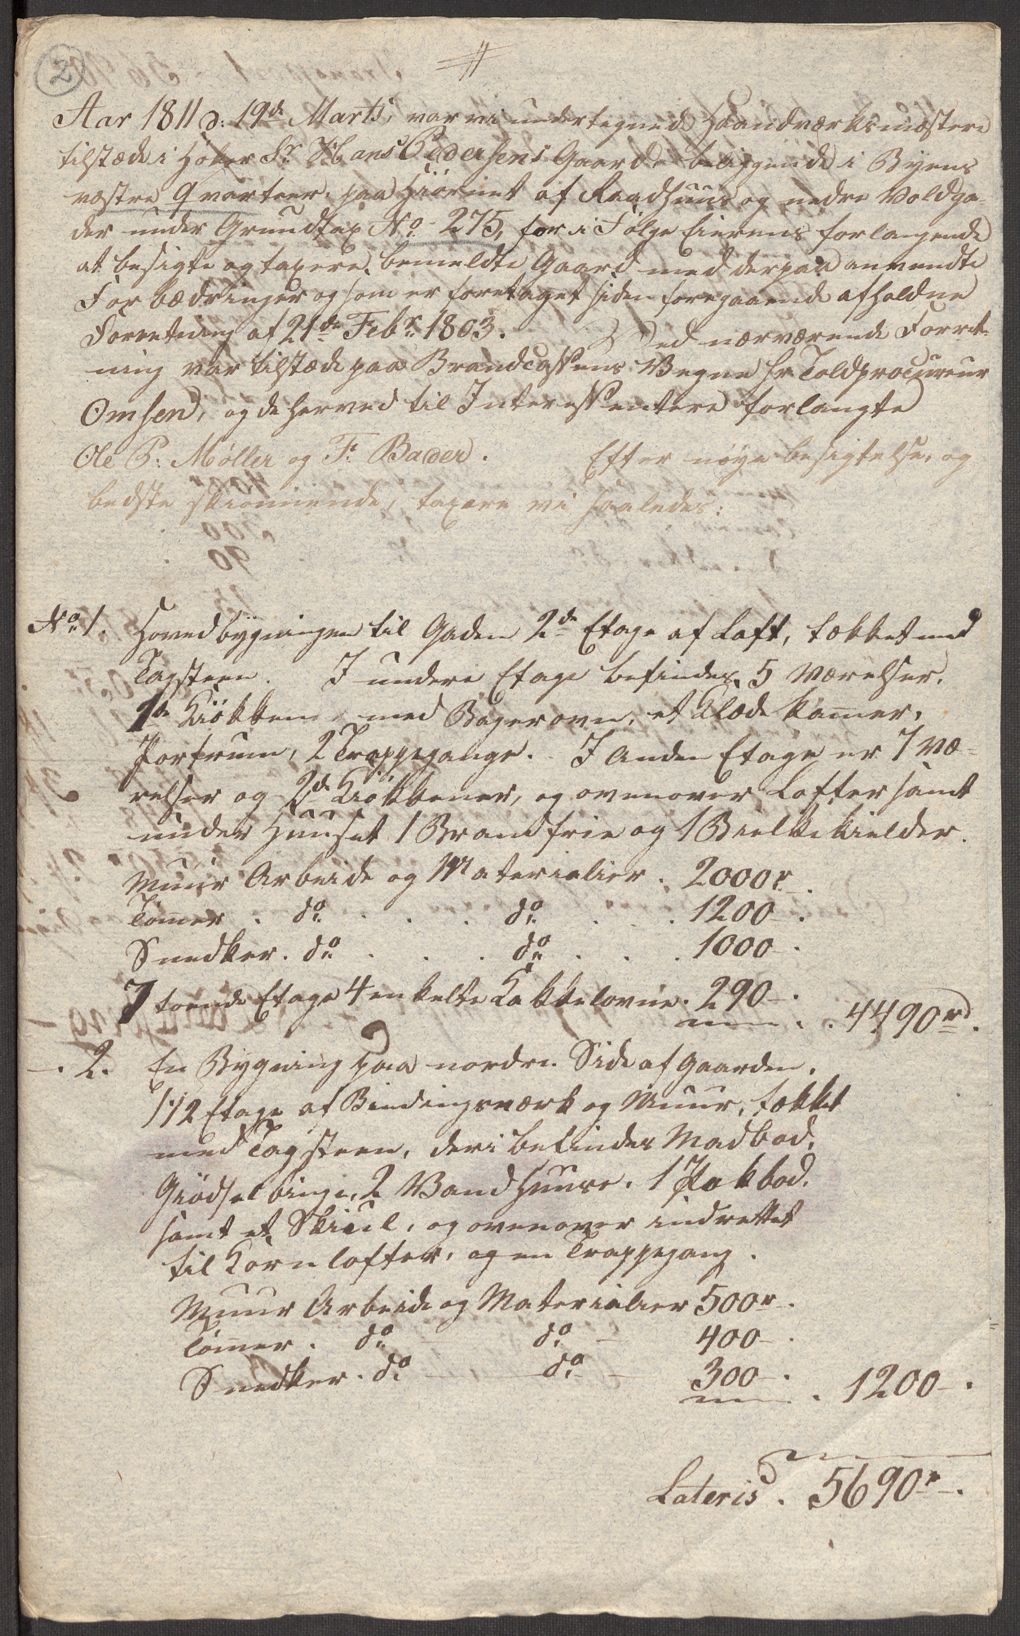 2
Aar 1811 d: 19de Marts, var vi undertegnede Haandværksmestere
tilstæde i Høker Sr Hans Pedersens Gaard beliggende i Byens
vestre Qvarteer, paa Hiørnet af Raadhuus og nedre Voldga-
der under Grundtax No 275, for i Følge Eierens forlangende
at besigte og taxere, bemeldte Gaard med derpaa anvendte
Forbædringer og som er foretaget siden foregaaende afholdne
Forretning af 21de Febr 1803. Ved nærværende Forret-
ning var tilstæde paa Brandcassens Vegne Hr Toldprocureur
Omsen, og de herved til Interessentere forlangte
Ole P: Møller og F: Bader. Efter nøye besigtelse, og
bedste skiønnende, taxere vi saaledes:
No 1. Hovedbygningen til Gaden 2de Etage af Laft, tekket med
Tagsteen. I undere Etage befindes 5 Værelser,
1de Kiøkken med Bagerovn, et Klæde Kammer,
Portrum, 2 Trappegange. I Anden Etage er 7 Væ-
relser og 2de Kiøkkener, og ovenover Lofter samt
under Huuset 1 Brandfrie og 1 Bielke kielder.
Muur Arbeide og Materialier. 2000r.
Tømer. do . . . do . . . 1200.
Snedker. do . . . do . . . 1000.
7 toende Etage 4 enkelte Kakkelovne. 290. . . 4490rd.
- . 2. En Bygning paa nordre Side af Gaarden,
1 1/2 Etage af Bindingsværk og Muur, tekket
med Tagsteen, deri befindes Madbod,
Giødselbinge, 2 Vandhuuse. 1 Pakbod.
samt et Skiul, og ovenover indrettet
til Kornlofter, og en Trappegang.
Muur Arbeide og Materialier 500r.
Tømmer. do - do - 400 - .
Snedker. do - do - 300 - . . 1200 - .
Lateris. 5690r - .